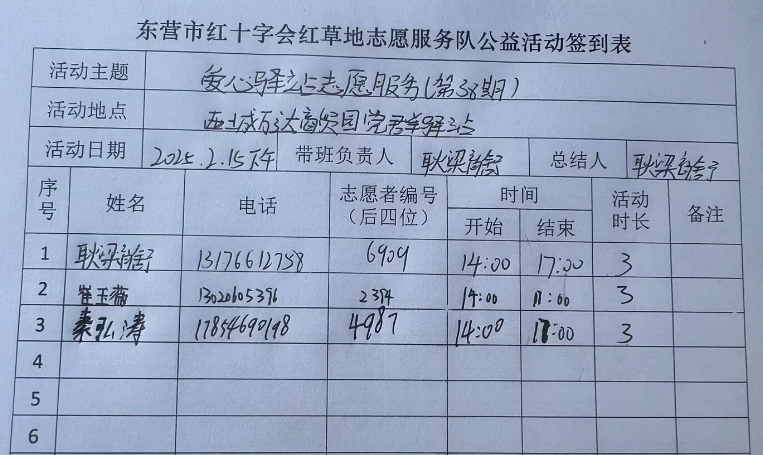 东营市红十字会红草地志愿服务队公益活动签到表
活动主题 爱心驿站志愿服务(第38期)
活动地点 西城万达商贸园党群驿站
活动日期 2025.2.15下午 带班负责人 耿梁 总结人 耿梁
序号 姓名 电话 志愿者编号(后四位) 时间 开始 结束 活动时长 备注
1 耿梁 13176612758 6909 14:00 17:00 3
2 崔玉薇 1302605396 2394 14:00 17:00 3
3 秦弘涛 17854690198 4987 14:00 17:00 3
4
5
6